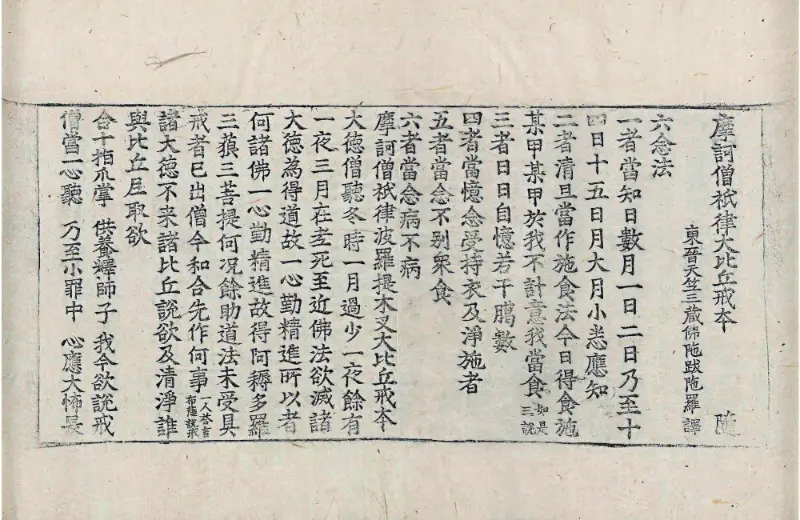 摩訶僧祇律大比丘戒本　隨
東晉天竺三藏佛陁跋陁羅譯
六念法
一者當知日數月一日二日乃至十
四日十五日月大月小悉應知
二者清旦當作施食法今日得食施
某甲某甲於我不計意我當食如是三說
三者日日自憶若干臈數
四者當憶念受持衣及淨施者
五者當念不別衆食
六者當念病不病
摩訶僧祇律波羅提木叉大比丘戒本
大德僧聽冬時一月過少一夜餘有
一夜三月在老死至近佛法欲滅諸
大德為得道故一心勤精進所以者
何諸佛一心勤精進故得阿耨多羅
三藐三菩提何況餘助道法未受具
戒者已出僧今和合先作何事一人答言布薩說戒
諸大德不来諸比丘說欲及清淨誰
與比丘尼取欲
合十指爪掌　供養釋師子　我今欲說戒
僧當一心聽　乃至小罪中　心應大怖畏